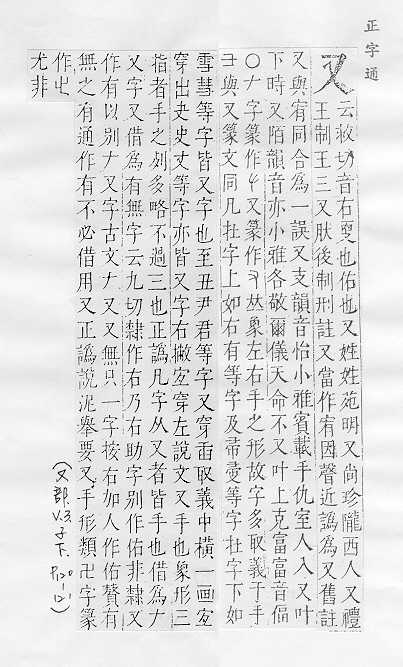 正字通
又 云救切音右夏也佑也又姓姓苑明又尚珍隴西人又禮
王制王三又肰後制刑註又當作宥因聲近譌為又舊註
又與宥同合為一誤又支韻音怡小雅賓載手仇室人入又叶
下時又陌韻音亦小雅各敬爾儀天命不又叶上克富富音偪
ナ字篆作又篆作象左右手之形故字多取義于手
彐與又篆文同凡在字上如右有等字及帚壺等字在字下如
雪彗等字皆又字也至丑尹君等字又穿而取義中橫一画
穿出史丈等字亦皆又字右撇穿左說文又手也象形三
指者手之列多略不過三也正譌凡字从又者皆手也借為ナ
又字又借為有無字云九切隷作右乃右助字別作佑非隷又
作有以別ナ又字古文ナ又又無只一字按右加人作佑贊有
無之有通作有不必借用又正譌說泥舉要又手形類卍字篆
作尤非
(又部 V.3. 子下. P.120-121)